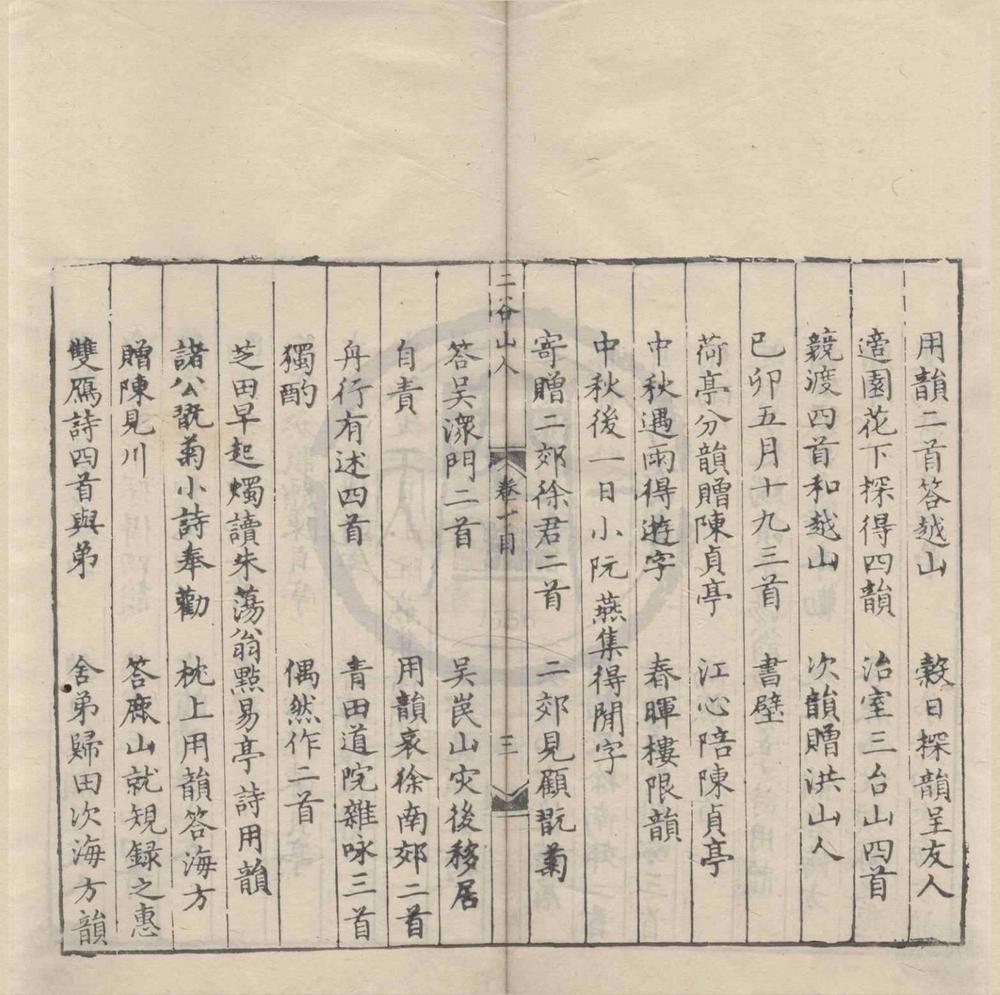 用韻二首答越山　穀日探韻呈友人
適園花下探得四韻　治室三台山四首
競渡四首和越山　次韻贈洪山人
已卯五月十九三首　書壁
荷亭分韻贈陳貞亭　江心陪陳貞亭
中秋遇雨得遊字　春暉樓限韻
中秋後一日小阮燕集得閒字
寄贈二郊徐君二首　二郊見顧翫菊
二谷山人　卷下目　三
答吳濴門二首　吳崑山灾後移居
自責　用韻哀徐南郊二首
舟行有述四首　青田道院雜咏三首
獨酌　偶然作二首
芝田早起燭讀朱蕩翁點易亭詩用韻
諸公翫菊小詩奉勸　枕上用韻答海方
贈陳見川　答鹿山就規録之惠
雙鴈詩四首與弟　舍弟歸田次海方韻